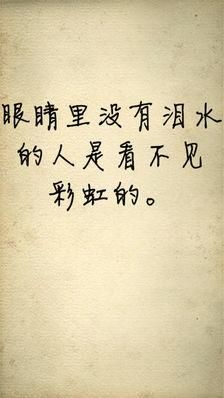 眼睛里没有泪水
的人是看不见
彩虹的。